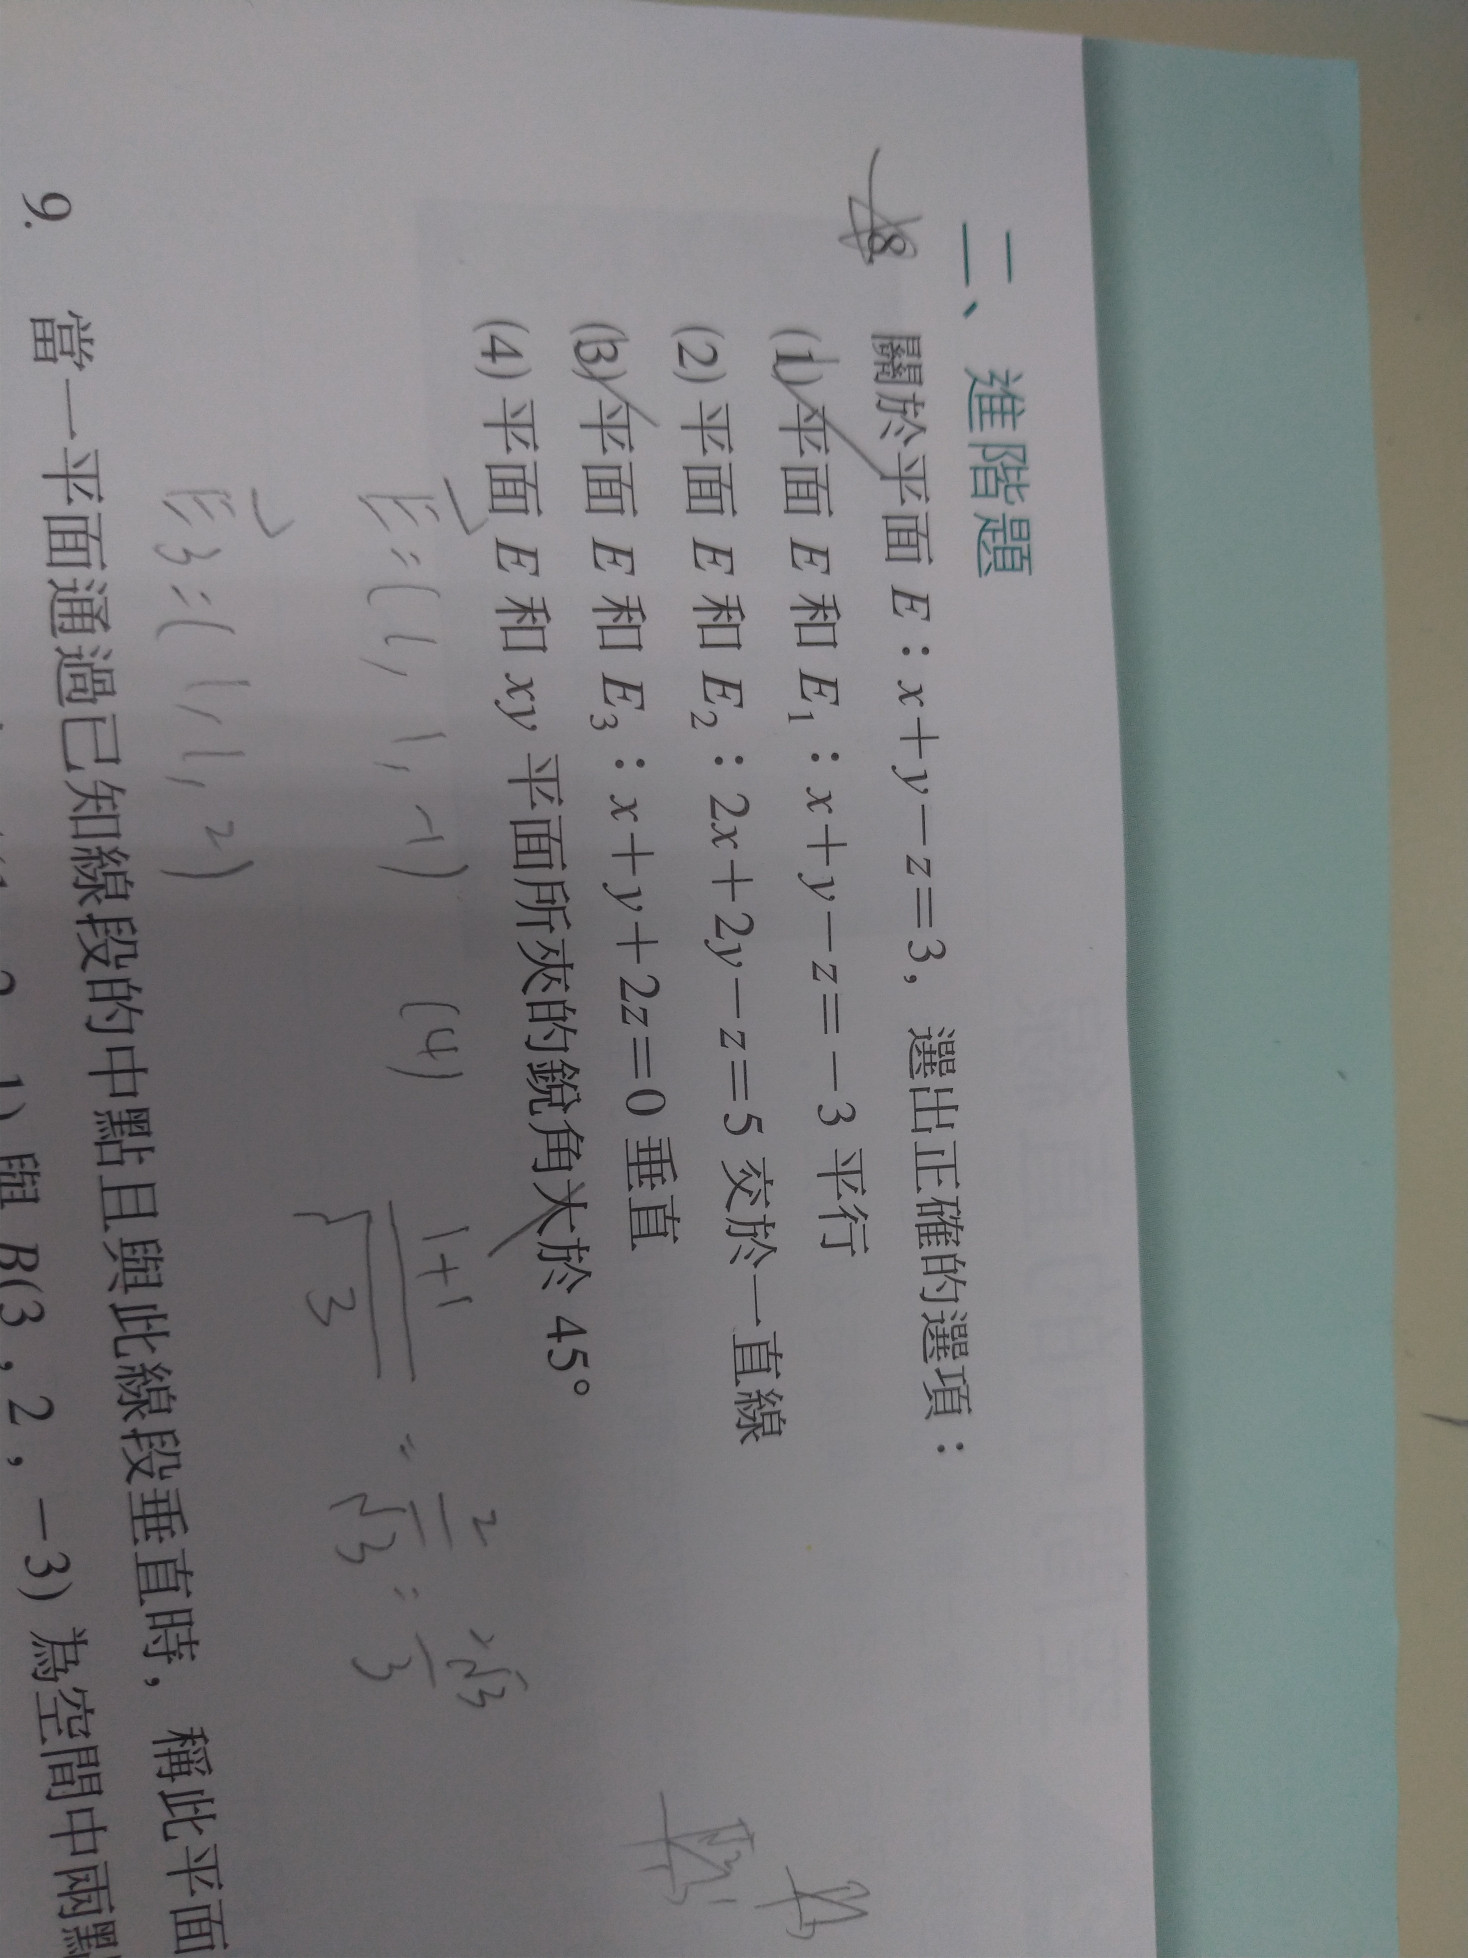 二、進階題
8. 關於平面 E：x+y－z=3，選出正確的選項：
(1) 平面 E 和 E₁：x+y－z=－3 平行
(2) 平面 E 和 E₂：2x+2y－z=5 交於一直線
(3) 平面 E 和 E₃：x+y+2z=0 垂直
(4) 平面 E 和 xy 平面所夾的銳角大於 45°
E=(1, 1, -1) (4) 1+1/√3 = 2/√3 = 2√3/3
E3=(1, 1, 2)
9. 當一平面通過已知線段的中點且與此線段垂直時，稱此平面
1) 與 B(3，2，－3) 為空間中兩點